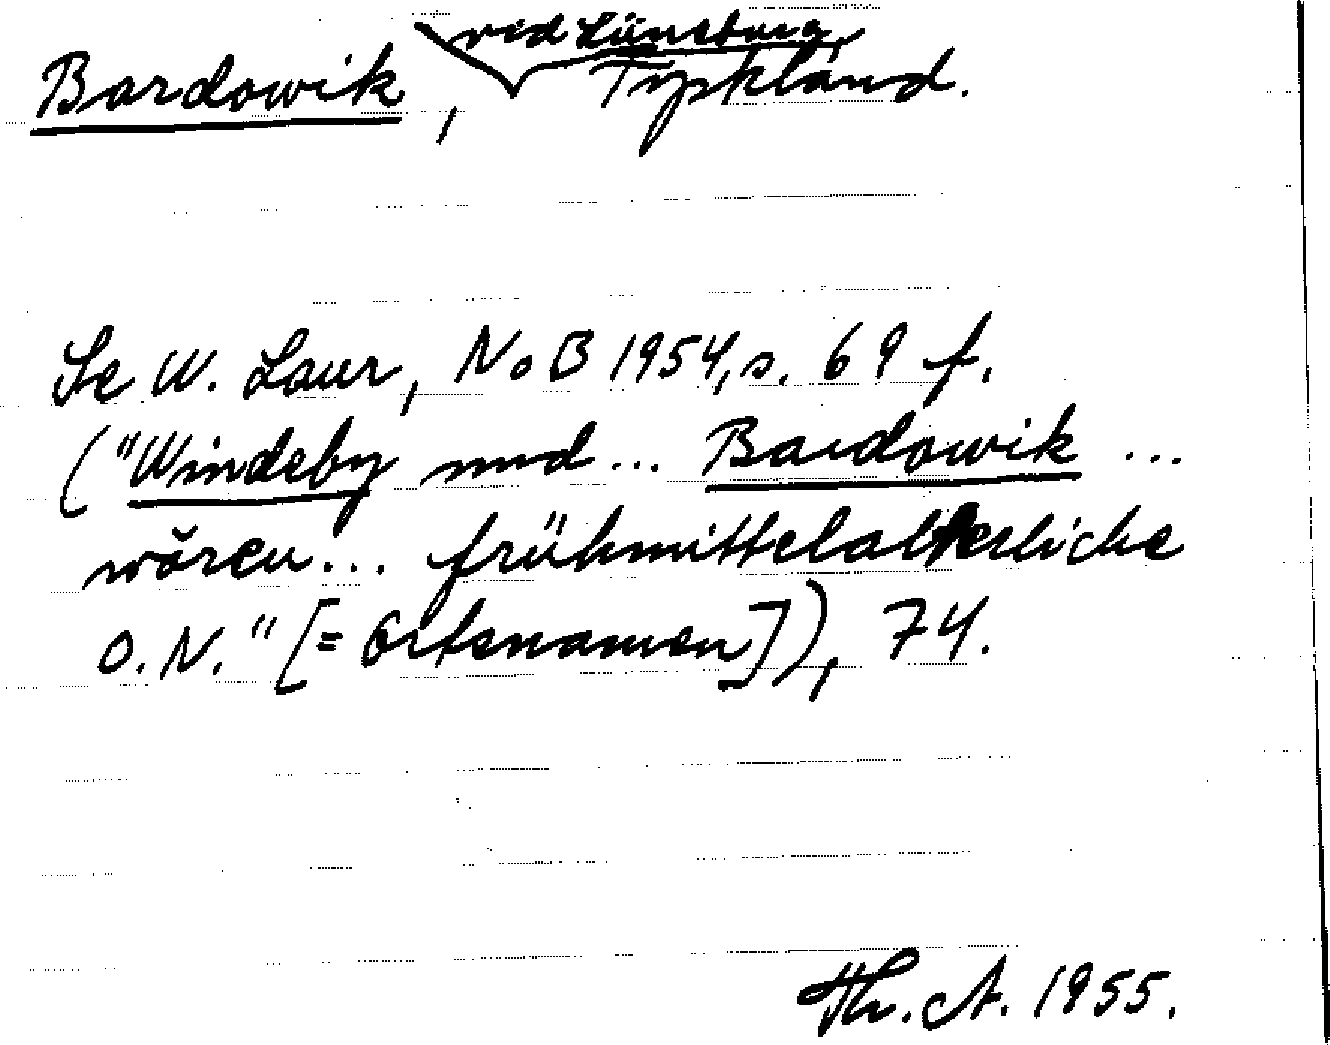 vid Lüneburg,
Bardowik, Tyskland.
Se W. Laur, NoB 1954, s. 69 f.
("Windeby und... Bardowik ...
wären... frühmittelalterliche
O.N." [= Ortsnamen]), 74.
Th. A. 1955.